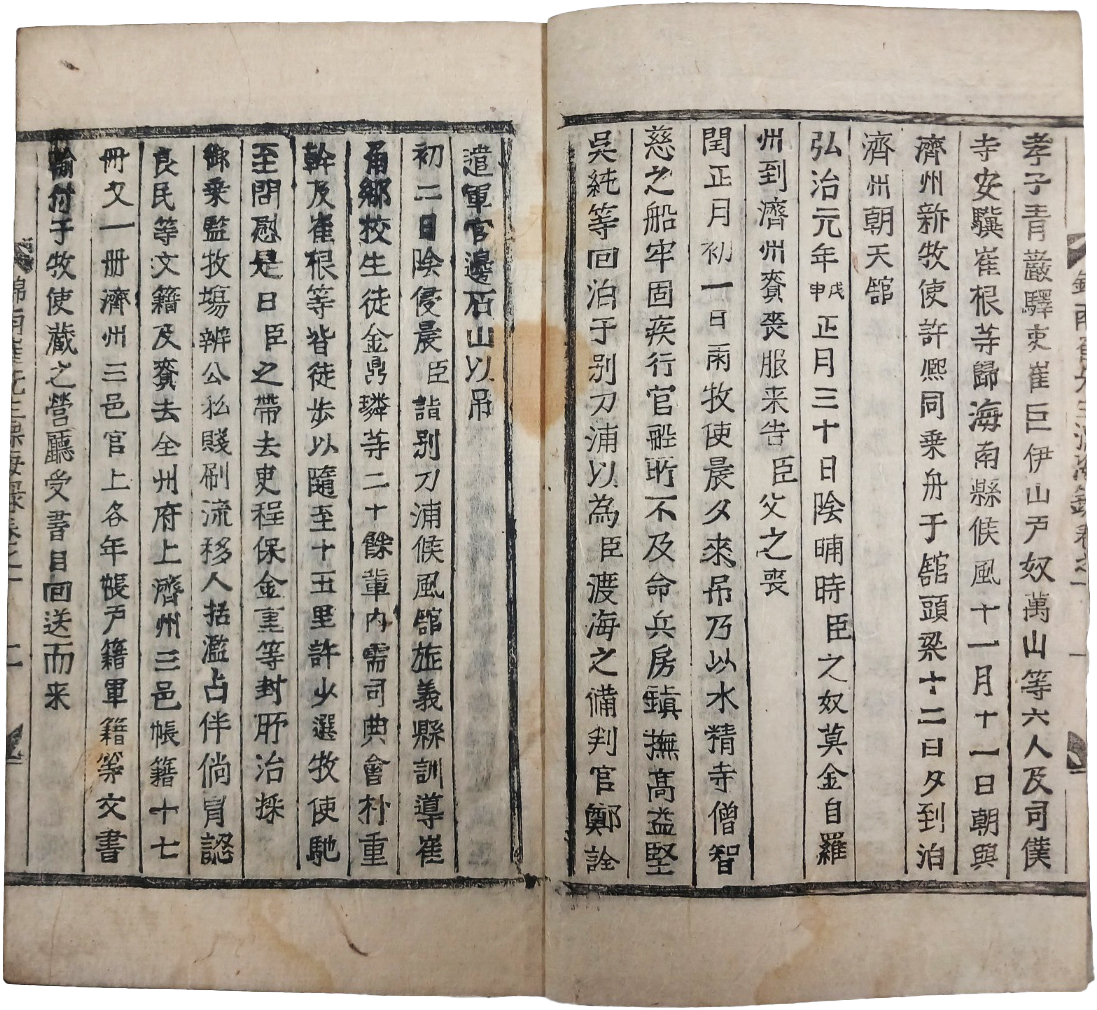 孝子青巖驛吏崔巨伊山戶奴萬山等六人及司僕
寺安驥崔根等歸海南縣候風十一月十一日朝與
濟州新牧使許熙同乗舟于舘頭梁十二日夕到泊
濟州朝天舘
弘治元年戊申正月三十日陰晡時臣之奴莫金自羅
州到濟州賫喪服来告臣父之喪
閏正月初一日雨牧使晨夕來吊乃以水精寺僧智
慈之船牢固疾行官舡所不及命兵房鎮撫高益堅
吳純等回泊于别刀浦以為臣渡海之備判官鄭詮
遣軍官邊石山以吊
初二日陰侵晨臣詣别刀浦候風舘旌義縣訓導崔
角鄉校生徒金鼎璘等二十餘軰内需司典會朴重
幹及崔根等皆徒步以隨至十五里許少選牧使馳
至問慰是日臣之帶去吏程保金重等封所治採
御乗監牧塲辨公私賤刷流移人括濫占伴倘冐認
良民等文籍及賫去全州府上濟州三邑帳籍十七
冊又一册濟州三邑官上各年帳戶籍軍籍等文書
輸付于牧使藏之營廳受書目回送而来